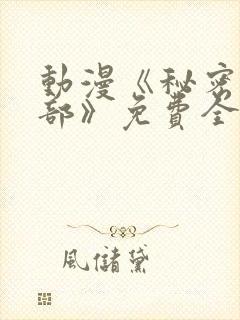 動漫《秘密
部》免費全
風儲黛